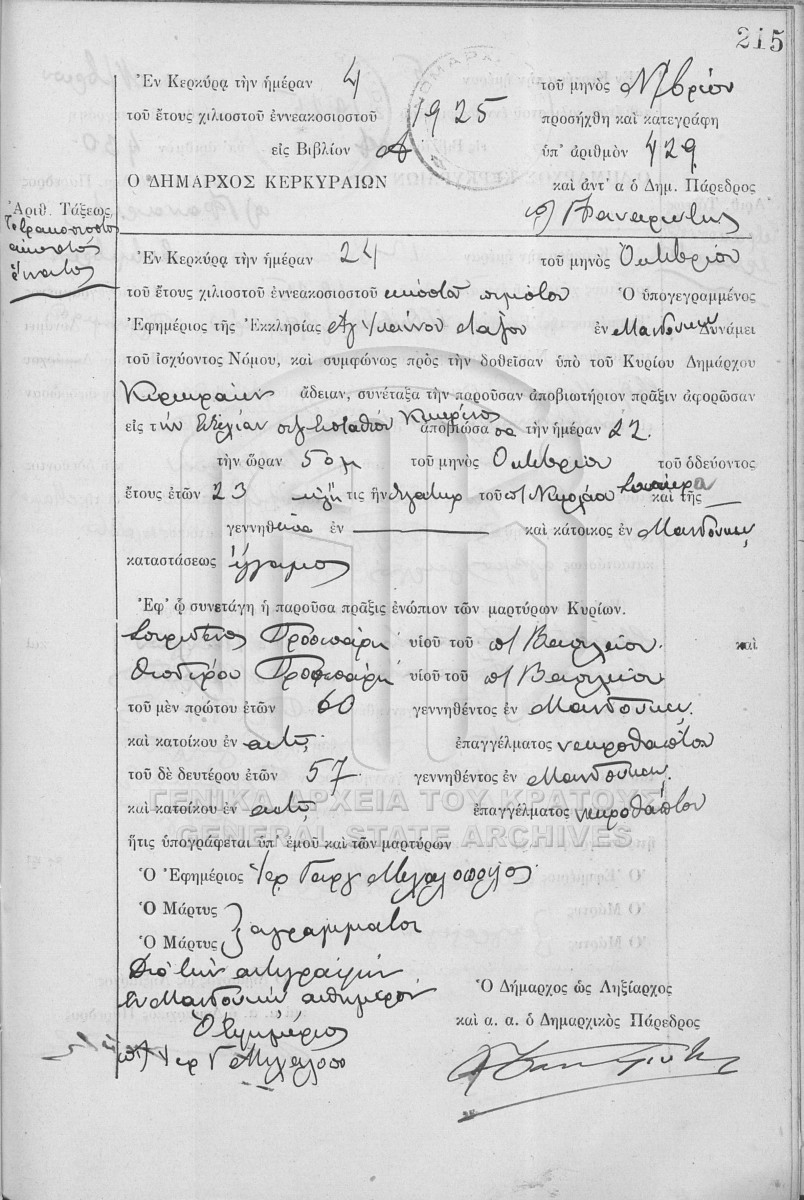 215
Ἐν Κερκύρᾳ τὴν ἡμέραν 4 τοῦ μηνὸς Νβρίου
τοῦ ἔτους χιλιοστοῦ ἐννεακοσιοστοῦ 1925 προσήχθη καὶ κατεγράφη
εἰς Βιβλίον Α ὑπ' ἀριθμὸν 429
Ο ΔΗΜΑΡΧΟΣ ΚΕΡΚΥΡΑΙΩΝ καὶ ἀντ' α ὁ Δημ. Πάρεδρος
Ἀριθ. Τάξεως
τετρακοσιοστὸς
εἰκοστὸς
ἔνατος
Ἐν Κερκύρᾳ τὴν ἡμέραν 24 τοῦ μηνὸς Ὀκτωβρίου
τοῦ ἔτους χιλιοστοῦ ἐννεακοσιοστοῦ εἰκοστοῦ πέμπτου Ὁ ὑπογεγραμμένος
Ἐφημέριος τῆς Ἐκκλησίας Ἁγ ἐν Μανδούκι Δυνάμει
τοῦ ἰσχύοντος Νόμου, καὶ συμφώνως πρὸς τὴν δοθεῖσαν ὑπὸ τοῦ Κυρίου Δημάρχου
Κερκυραίων ἄδειαν, συνέταξα τὴν παροῦσαν ἀποβιωτήριον πρᾶξιν ἀφορῶσαν
εἰς τὴν συζ Εὐσταθίου ἀποβιώσασα τὴν ἡμέραν 22.
τὴν ὥραν 5 μμ τοῦ μηνὸς Ὀκτωβρίου τοῦ ὁδεύοντος
ἔτους ἐτῶν 23 τις ἦν θυγάτηρ τοῦ π/ Νικολάου καὶ τῆς —
γεννηθεῖσα ἐν — καὶ κάτοικος ἐν Μανδούκι
καταστάσεως ἔγγαμος
Ἐφ' ᾧ συνετάγη ἡ παροῦσα πρᾶξις ἐνώπιον τῶν μαρτύρων Κυρίων.
Σπυρίδωνος υἱοῦ τοῦ π/ Βασιλείου. καὶ
Θεοδώρου υἱοῦ τοῦ π/ Βασιλείου
τοῦ μὲν πρώτου ἐτῶν 60 γεννηθέντος ἐν Μανδούκι
καὶ κατοίκου ἐν αὐτῷ ἐπαγγέλματος νεκροθάπτου
τοῦ δὲ δευτέρου ἐτῶν 57 γεννηθέντος ἐν Μανδούκι
καὶ κατοίκου ἐν αὐτῷ ἐπαγγέλματος νεκροθάπτου
ΓΕΝΙΚΑ ΑΡΧΕΙΑ ΤΟΥ ΚΡΑΤΟΥΣ
GENERAL STATE ARCHIVES
ἥτις ὑπογράφεται ὑπ' ἐμοῦ καὶ τῶν μαρτύρων
Ὁ Ἐφημέριος Ἱερ Γεώργ Μεγαλόπουλος
Ὁ Μάρτυς
ἀγράμματοι
Ὁ Μάρτυς
Διὰ τὴν ἀντιγραφὴν
Ἐν Μανδουκίῳ αὐθημερόν
Ὁ Ἐφημέριος
Ὁ Δήμαρχος ὡς Ληξίαρχος
καὶ α. α. ὁ Δημαρχικὸς Πάρεδρος
Ἱερ Γ Μεγαλοπο